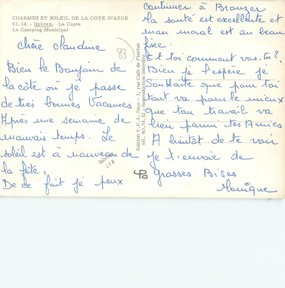 CHARMES ET SOLEIL DE LA COTE D'AZUR
83. 34. - Hyères. La Capte
Le Camping Municipal
83
chère claudine
Bien le Bonjour de la
côte où je passe
de très bonnes Vacances
Après une semaine de
mauvais temps. Le
soleil est à nouveau de
la fête.
De ce fait je peux
continuer à Bronzer
la santé est excellente et
mon moral est au beau
fixe.
Et toi comment vas-tu?
Bien je l'espère je
souhaite que pour toi
tout va pour le mieux
que ton travail va
bien parmi tes Amies
A bientôt de te voir
je t'envoie de
grosses Bises
Monique